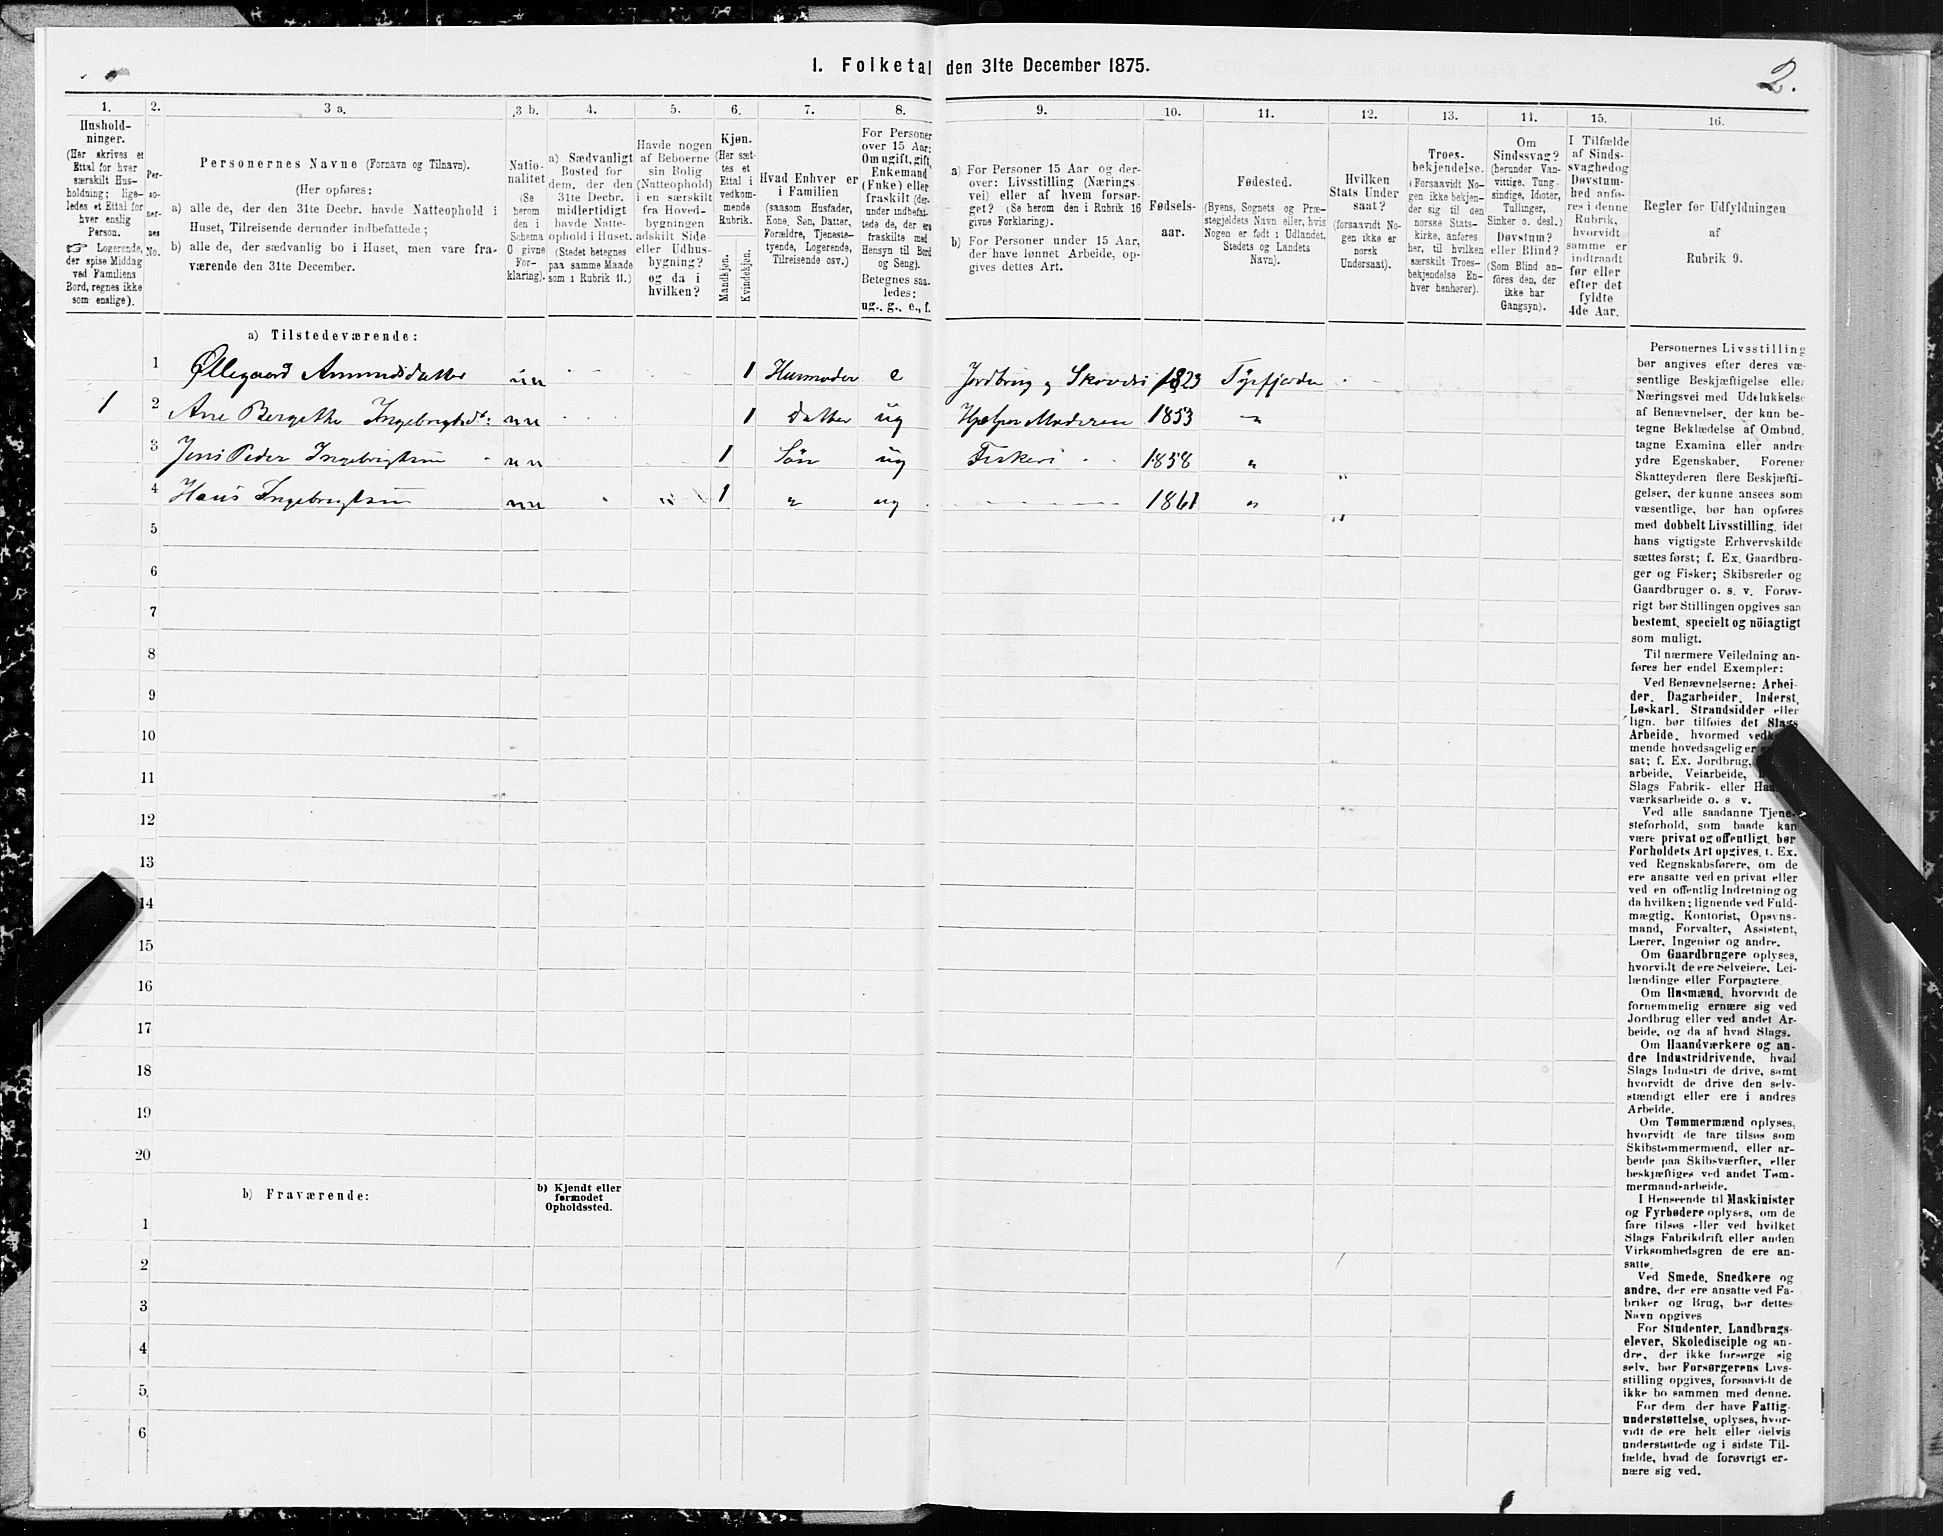 I. Folketal den 31te December 1875.
2.
1.
Hushold-
ninger.
(Her skrives et
Ettal for hver
særskilt Hus-
holdning; lige-
ledes et Ettal for
hver enslig
Person.
☞ Logerende,
der spise Middag
ved Familiens
Bord, regnes ikke
som enslige).
2.
Per-
so-
ner-
nes
No.
3 a.
Personernes Navne (Fornavn og Tilnavn).
(Her opføres:
a) alle de, der den 31te Decbr. havde Natteophold i
Huset, Tilreisende derunder indbefattede;
b) alle de, der sædvanlig bo i Huset, men vare fra-
værende den 31te December.
3 b.
Natio-
nalitet
(Se
herom
den i
Schema
O givne
For-
klaring).
4.
a) Sædvanligt
Bosted for
dem, der den
31te Decbr.
midlertidigt
havde Natte-
ophold i Huset.
(Stedet betegnes
paa samme Maade
som i Rubrik 11.)
5.
Havde nogen
af Beboerne
sin Bolig
(Natteophold)
i en særskilt
fra Hoved-
bygningen
adskilt Side
eller Udhus-
bygning?
og da i
hvilken?
6.
Kjøn.
(Her sæt-
tes et
Ettal i
vedkom-
mende
Rubrik.
Mandkjøn.
Kvindekjøn.
7.
Hvad Enhver er
i Familien
(saasom Husfader,
Kone, Søn, Datter,
Forældre, Tjeneste-
tyende, Logerende,
Tilreisende osv.)
8.
For Personer
over 15 Aar:
Om ugift, gift,
Enkemand
(Enke) eller
fraskilt (der-
under indbefat-
tede de, der ere
fraskilte med
Hensyn til Bord
og Seng).
Betegnes saa-
ledes:
ug., g., e., f.
9.
a) For Personer 15 Aar og der-
over: Livsstilling (Nærings-
vei) eller af hvem forsør-
get? (Se herom den i Rubrik 16
givne Forklaring).
b) For Personer under 15 Aar,
der have lønnet Arbeide, op-
gives dettes Art.
10.
Fødsels-
aar.
11.
Fødested.
(Byens, Sognets og Præ-
stegjeldets Navn eller, hvis
Nogen er født i Udlandet,
Stedets og Landets
Navn).
12.
Hvilken
Stats Under
saat?
(forsaavidt No-
gen ikke er
norsk
Undersaat).
13.
Troes-
bekjendelse.
(Forsaavidt No-
gen ikke bekjen-
der sig til den
norske Stats-
kirke, anføres
her, til hvilken
særskilt Troes-
bekjendelse En-
hver henhører).
14.
Om
Sindssvag?
(herunder Van-
vittige, Tung-
sindige, Idioter,
Tullinger,
Sinker o. desl.)
Døvstum?
eller Blind?
(Som Blind an-
føres den, der
ikke har
Gangsyn).
15.
I Tilfælde
af Sinds-
svaghed og
Døvstum-
hed anfø-
res i denne
Rubrik,
hvorvidt
samme er
indtraadt
før eller
efter det
fyldte
4de Aar.
16.
Regler for Udfyldningen
af
Rubrik 9.
a) Tilstedeværende:
1 Øllegaard Amundsdatter nn 1 Husmoder e Jordbrug og 1823
1 2 Ane Bergethe Ingebrigtsdt: nn 1 Datter ug Hjelper Moderen 1853 "
3 Jens Peder Ingebrigtsen nn 1 Søn ug Fiskeri 1858 "
4 Hans Ingebrigtsen nn 1 " ug 1861 "
5
6
7
8
9
10
11
12
13
14
15
16
17
18
19
20
b) Fraværende:
b) Kjendt eller
formodet
Opholdssted.
1
2
3
4
5
6
Personernes Livsstilling
bør angives efter deres væ-
sentlige Beskjæftigelse eller
Næringsvei med Udelukkelse
af Benævnelser, der kun be-
tegne Beklædelse af Ombud,
tagne Examina eller andre
ydre Egenskaber. Forener
Skatteyderen flere Beskjæfti-
gelser, der kunne ansees som
væsentlige, bør han opføres
med dobbelt Livsstilling, idet
hans vigtigste Erhvervskilde
sættes først; f. Ex. Gaardbru-
ger og Fisker; Skibsreder og
Gaardbruger o. s. v. Forøv-
rigt bør Stillingen opgives saa
bestemt, specielt og nöiagtigt
som muligt.
Til nærmere Veiledning an-
føres her endel Exempler:
Ved Benævnelserne: Arbei-
der, Dagarbeider, Inderst,
Løskarl, Strandsidder eller
lign. bør tilføies det Slags
Arbeide, hvormed
mende hovedsagelig er
sat; f. Ex. Jordbrug,
arbeide, Veiarbeide,
Slags Fabrik- eller
værksarbeide o. s. v.
Ved alle saadanne Tjene-
steforhold, som baade kan
være privat og offentligt, bør
Forholdets Art opgives, t. Ex.
ved Regnskabsførere, om de
ere ansatte ved en privat eller
ved en offentlig Indretning og
da hvilken; lignende ved Fuld-
mægtig, Kontorist, Opsyns-
mand, Forvalter, Assistent,
Lærer, Ingeniør og andre.
Om Gaardbrugere oplyses,
hvorvidt de ere Selveiere, Lei-
lændinge eller Forpagtere.
Om Husmænd, hvorvidt de
fornemmelig ernære sig ved
Jordbrug eller ved andet Ar-
beide, og da af hvad Slags.
Om Haandværkere og an-
dre Industridrivende, hvad
Slags Industri de drive, samt
hvorvidt de drive den selv-
stændigt eller ere i andres
Arbeide.
Om Tømmermænd oplyses,
hvorvidt de fare tilsøs som
Skibstømmermænd, eller ar-
beide paa Skibsværfter, eller
beskjæftiges ved andet Tøm-
mermandsarbeide.
I Henseende til Maskinister
og Fyrbødere oplyses, om de
fare tilsøs eller ved hvilket
Slags Fabrikdrift eller anden
Virksomhedsgren de ere an-
satte.
Ved Smede, Snedkere og
andre, der ere ansatte ved Fa-
briker og Brug, bør dettes
Navn opgives
For Studenter, Landbrugs-
elever, Skoledisciple og an-
dre, der ikke forsørge sig
selv, bør Forsørgerens Livs-
stilling opgives, forsaavidt de
ikke bo sammen med denne.
For dem der have Fattig-
understøttelse, oplyses, hvor-
vidt de ere helt eller delvis
understøttede og i sidste Til-
fælde, hvad de forøvrigt er-
nære sig ved.